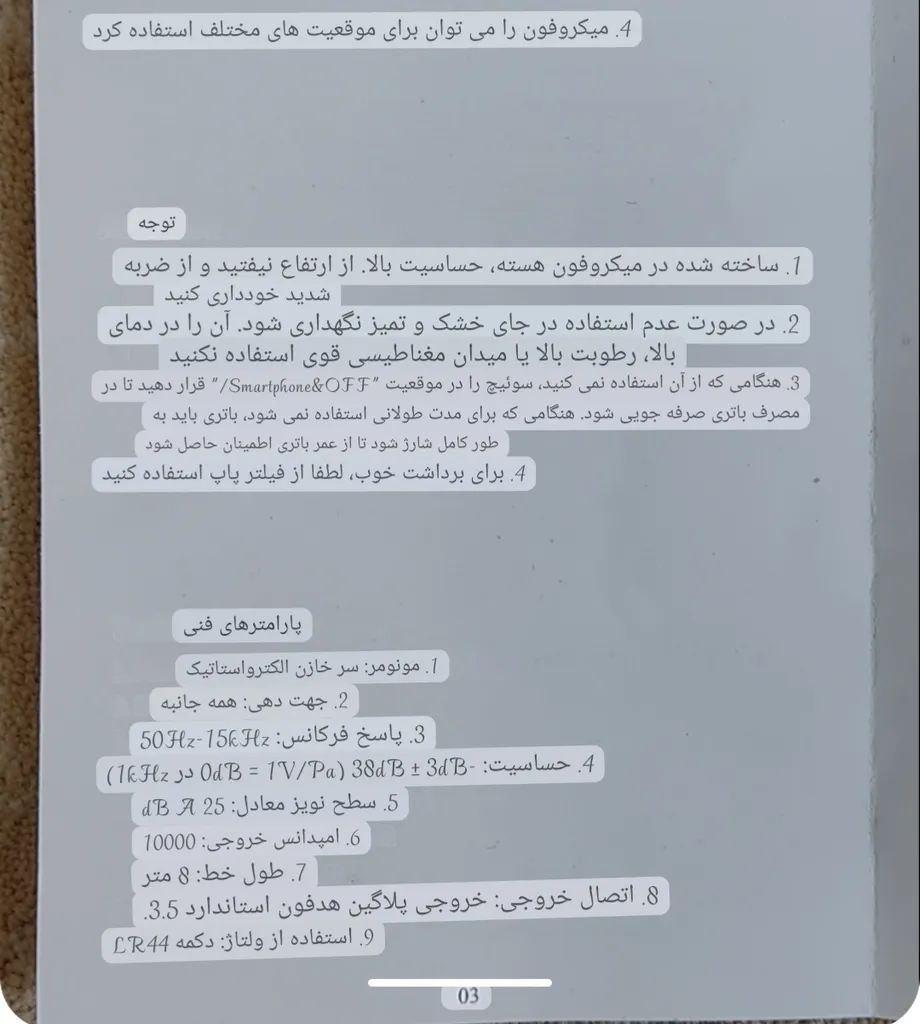 4. میکروفون را می توان برای موقعیت های مختلف استفاده کرد
توجه
1. ساخته شده در میکروفون هسته، حساسیت بالا. از ارتفاع نیفتید و از ضربه
شدید خودداری کنید
2. در صورت عدم استفاده در جای خشک و تمیز نگهداری شود. آن را در دمای
بالا، رطوبت بالا یا میدان مغناطیسی قوی استفاده نکنید
3. هنگامی که از آن استفاده نمی کنید، سوئیچ را در موقعیت "Smartphone&OFF/" قرار دهید تا در
مصرف باتری صرفه جویی شود. هنگامی که برای مدت طولانی استفاده نمی شود، باتری باید به
طور کامل شارژ شود تا از عمر باتری اطمینان حاصل شود
4. برای برداشت خوب، لطفا از فیلتر پاپ استفاده کنید
پارامترهای فنی
1. مونومر: سر خازن الکترواستاتیک
2. جهت دهی: همه جانبه
3. پاسخ فرکانس: 50Hz-15kHz
4. حساسیت: -38dB ± 3dB (0dB = 1V/Pa در 1kHz)
5. سطح نویز معادل: 25 dB A
6. امپدانس خروجی: 10000
7. طول خط: 8 متر
8. اتصال خروجی: خروجی پلاگین هدفون استاندارد 3.5.
9. استفاده از ولتاژ: دکمه LR44
03